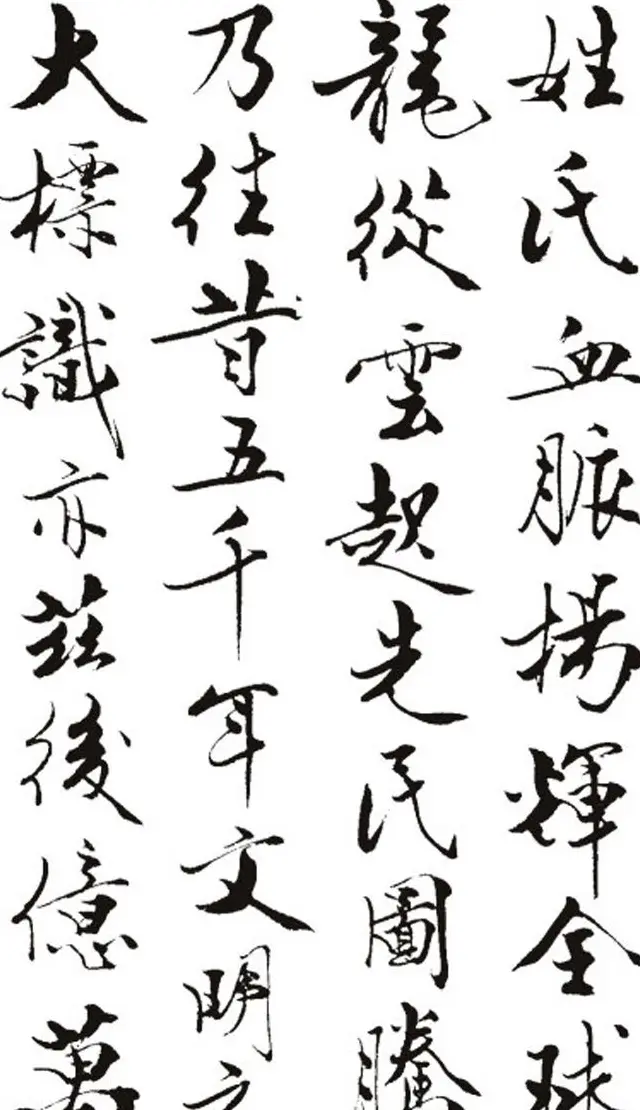 姓氏血脈揚輝全球
龍從雲起先民圖騰
乃往昔五千年文明
大標識亦茲後億萬